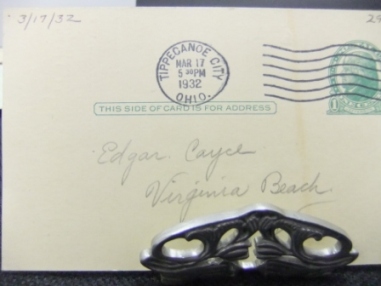 3/17/32
TIPPECANOE CITY
MAR 17
5 30 PM
1932
OHIO.
THIS SIDE OF CARD IS FOR ADDRESS
Edgar Cayce
Virginia Beach